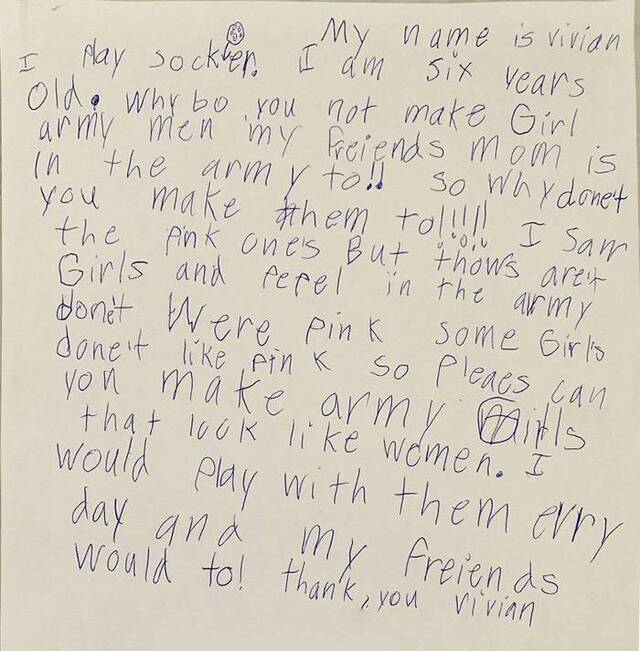 My name is vivian
I play socker. I am six years
Old. Why bo you not make Girl
army men my freiends mom is
in the army to!! so why donet
you make them to!!!!! I saw
the pink ones But thows are't
Girls and pepel in the army
donet Were pink some Girls
done't like pink so pleaes can
you make army Girls
that look like women. I
would play with them evry
day and my freiends
would to! thank, you vivian